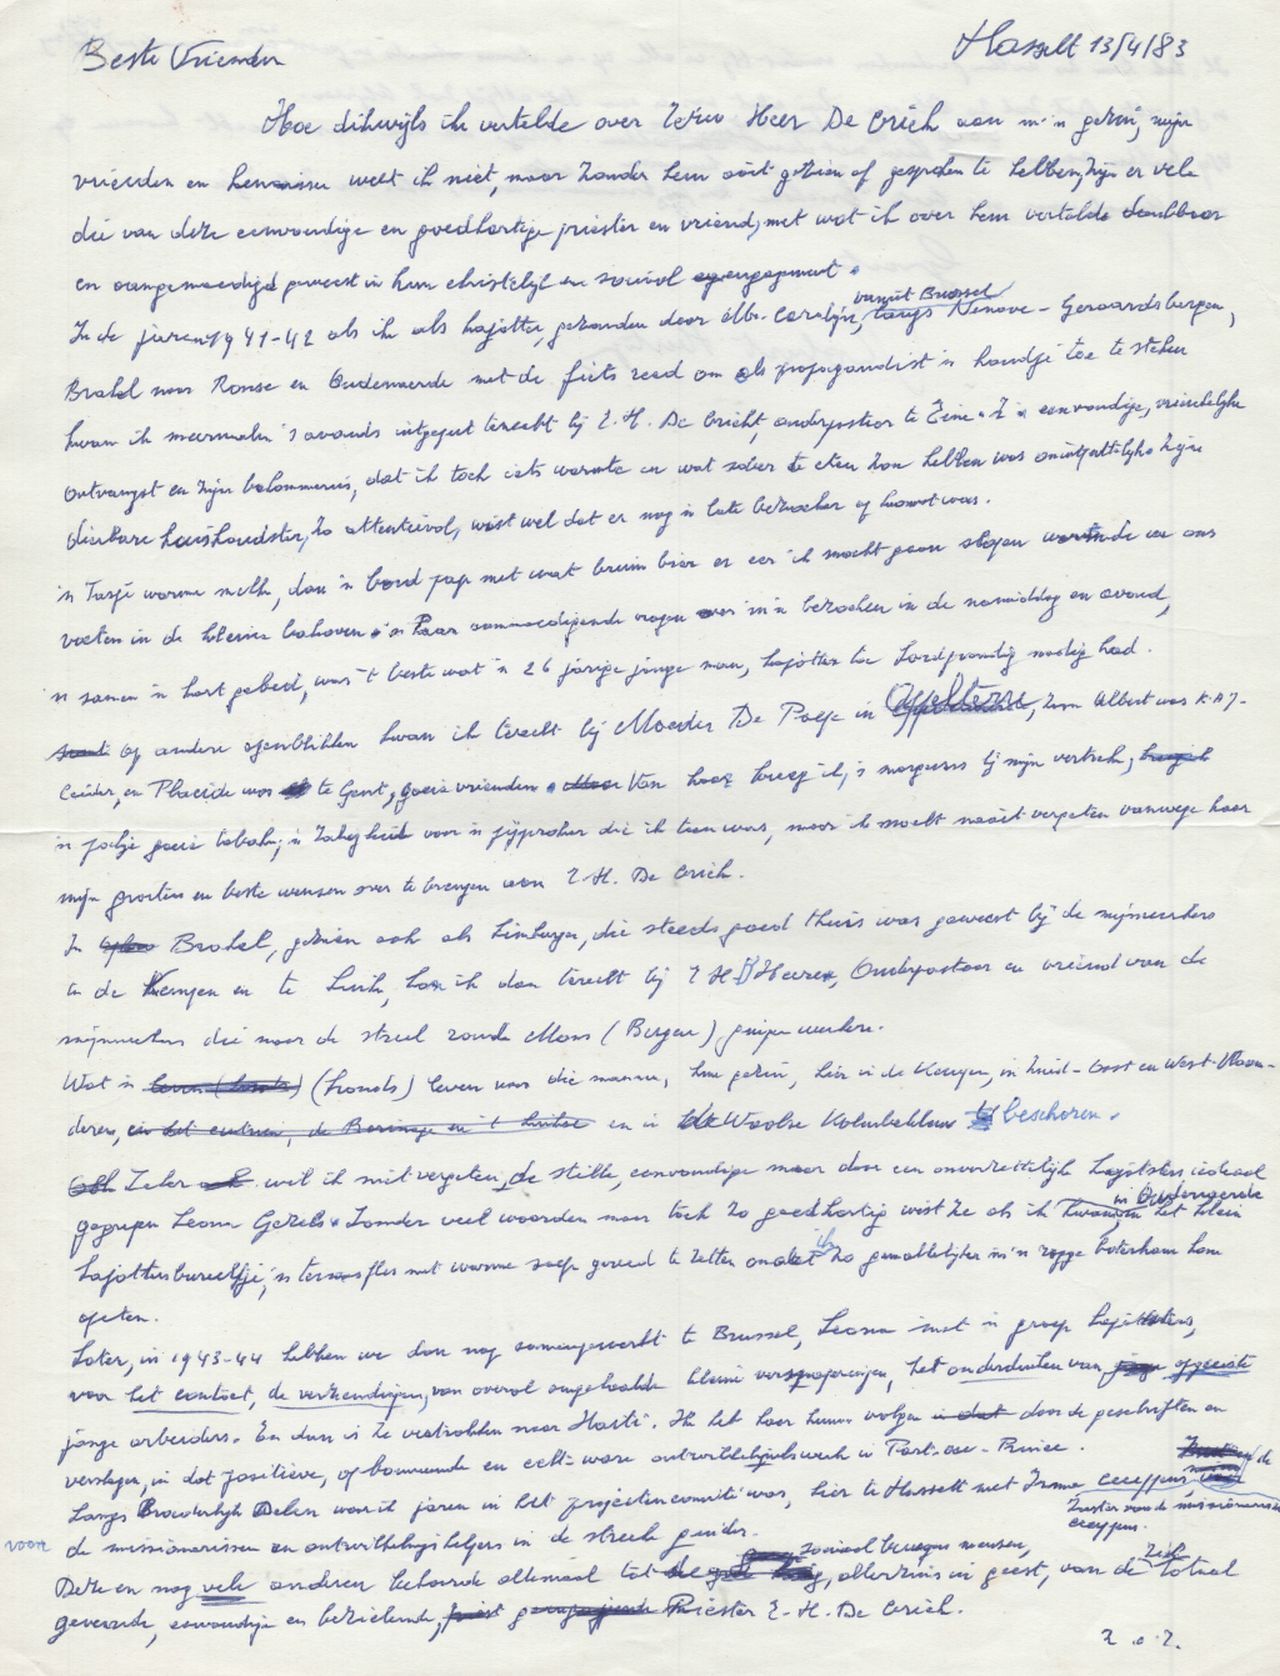 Beste Vrienden
Hasselt 13/4/83
Hoe dikwijls ik vertelde over Eerw Heer De Crich aan m'n gezin, mijn
vrienden en kennissen weet ik niet, maar zonder hem ooit gezien of gesproken te hebben, zijn er vele
die van deze eenvoudige en goedhartige priester en vriend, met wat ik over hem vertelde dankbaar
en aangemoedigd geweest in hun christelijk en sociaal engagement.
In de jaren 1941-42 als ik als kajotter, gezonden door Albr. Carolijn, vanuit Brussel langs Ninove - Geraardsbergen,
Brakel naar Ronse en Oudenaarde met de fiets reed om als propagandist 'n handje toe te steken
kwam ik meermalen 's avonds uitgeput terecht bij E.H. De Cricht, onderpastoor te Eine. Z'n eenvoudige, vriendelijke
ontvangst en zijn bekommernis, dat ik toch iets warmte en wat zeker te eten zou hebben was onuitputtelijk. Zijne
dierbare huishoudster, zo attentievol, wist wel dat er nog 'n late bezoeker op komst was.
'n Tasje warme melk, dan 'n bord pap met wat bruin bier en eer ik mocht gaan slapen warmde we ons
voeten in de kleine bakoven. 'n Paar aanmoedigende vragen over m'n bezoeken in de namiddag en avond,
'n samen 'n kort gebed, was 't beste wat 'n 26 jarige jonge man, kajotter toe hardgrondig nodig had.
Op andere ogenblikken kwam ik terecht bij Moeder De Paepe in Appelterre, zoon Albert was K.A.J.-
leider, en Placide was te Gent, goeie vrienden. Van haar kreeg ik, 's morgens bij mijn vertrek,
'n pakje goeie tabak, 'n zaligheid voor 'n pijproker die ik toen was, maar ik mocht nooit vergeten vanwege haar
mijn groeten en beste wensen over te brengen aan E.H. De Crich.
In Brakel, gezien ook als Limburger, die steeds goed thuis was geweest bij de mijnwerkers
in de Kempen en te Luik, kon ik dan terecht bij E H D'Heere, Onderpastoor en vriend van de
mijnwerkers die naar de streek ronde Mons (Bergen) gingen werken.
Wat 'n (honds) leven was die mannen, hun gezin, hier in de Kempen, in Zuid-Oost en West-Vlaan-
deren, en in de Waalse Kolenbekken beschoren.
Zeker wil ik niet vergeten, de stille, eenvoudige maar door een onverzettelijk kajotsters ideaal
gegrepen Leona Gezels. Zonder veel woorden maar toch zo goedhartig wist ze als ik kwam in Oudenaarde in het klein
kajottersbureeltje, 'n termosfles met warme soep gereed te zetten omdat ik zo gemakkelijker m'n rogge boterham kon
opeten.
Later, in 1943-44 hebben we dan nog samengewerkt te Brussel, Leona met 'n groep kajotsters,
voor het contact, de verzendingen, van overal omgehaalde kleine verssnaperingen, het onderduiken van opgeëiste
jonge arbeiders. En dan is ze vertrokken naar Haïti. Ik heb haar kunnen volgen door de geschriften en
verslagen, in dat positieve, opbouwende en echt-ware ontwikkelingswerk in Port-au-Prince.
Langs Broederlijk Delen waar ik jaren in het projectencomité was, hier te Hasselt met Irma Ceeyssens de
Zuster van de missionaris
Ceeyssens.
voor de missionarissen en ontwikkelingshelpers in de streek ginder.
Deze en nog vele anderen behoorde allemaal tot sociaal bewogen mensen, allerzins in geest, van de zich totaal
gevende, eenvoudige en bezielende, Priester E.H. De Crich.
z.o.z.